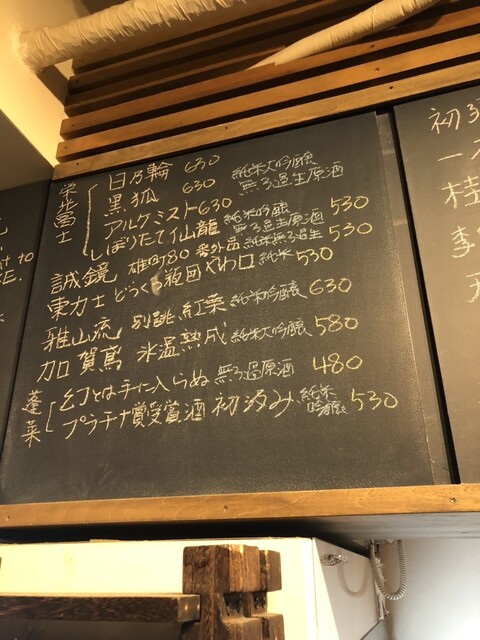 栄光冨士
日乃輪 630 純米大吟醸
黒狐 630 無ろ過生原酒
アルケミスト 630
しぼりたて 仙龍 純米吟醸 無ろ過生原酒 530
誠鏡 雄町80 番外品 純米無ろ過生 530
東力士 どうくつ 範囲 やわ口 純米 530
雅山流 別誂 紅葉 純米吟醸 630
加賀鳶 氷温熟成 純米大吟醸 580
蓬莱
幻とは手に入らぬ 無ろ過原酒 480
プラチナ賞受賞酒 初汲み 純米吟醸 530
初
一
桂
李